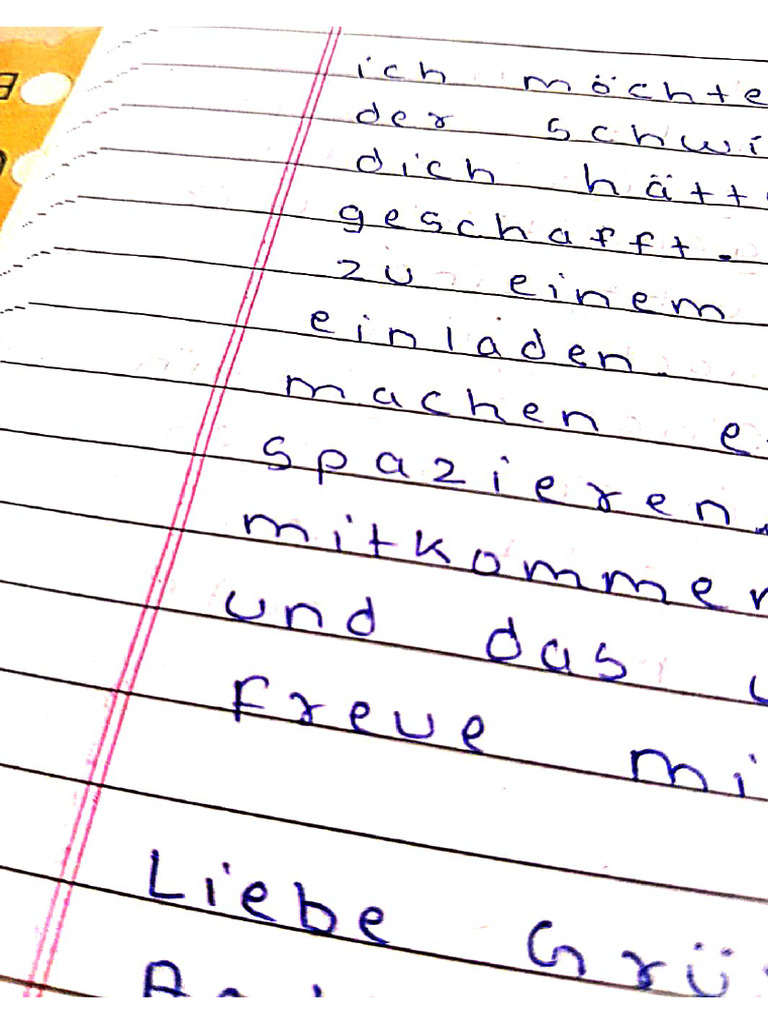 ich möchte
der schwi
dich hätt
geschafft.
zu einem
einladen.
machen e
spazieren.
mitkommen
und das
freue mi
Liebe Grü